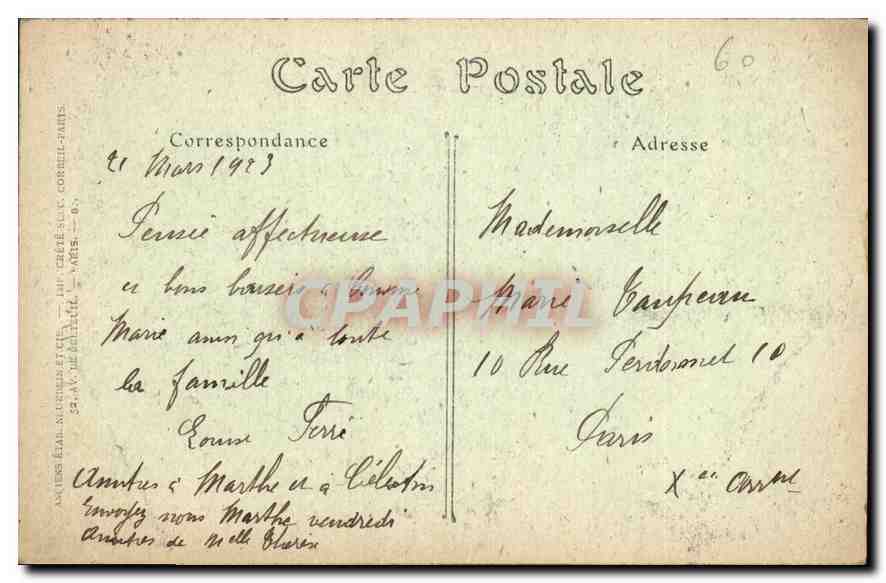 60
Carte Postale
Correspondance
21 Mars 1923
Pensée affectueuse
et bons baisers à
Marie ainsi qu'à toute
la famille
Louise Ferré
Amitiés à Marthe et à Célestin
Envoyez nous Marthe vendredi
Amitiés de Melle Thérèse
Adresse
Mademoiselle
Marie Taupeau
10 Rue Perdonnet 10
Paris
Xe Arrmt
CPAPHIL
ANCIENS ÉTAB. NEURDEIN ET CIE. — IMP. CRÉTÉ SUCC. CORBEIL-PARIS.
52, AV. DE BRETEUIL. — PARIS. —